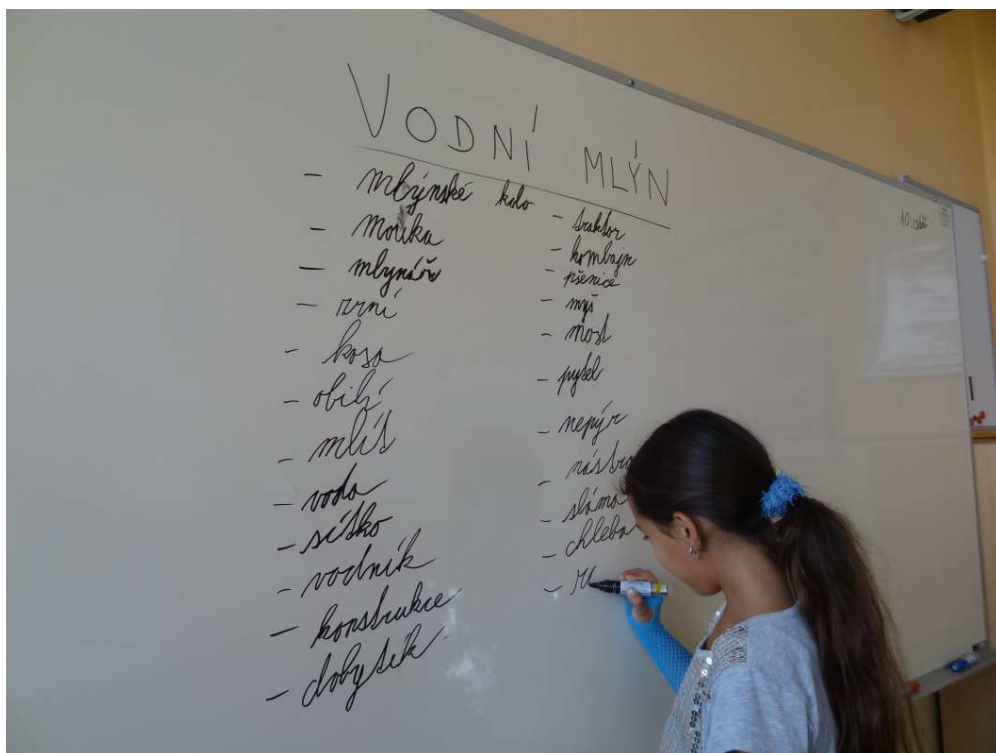 VODNÍ MLÝN
- mlýnské kolo
- mouka
- mlynář
- zrní
- kosa
- obilí
- mlít
- voda
- sítko
- vodník
- konstrukce
- dobyték
- traktor
- kombajn
- pšenice
- myš
- most
- pytel
- nepýr
- nástro
- sláma
- chleba
-